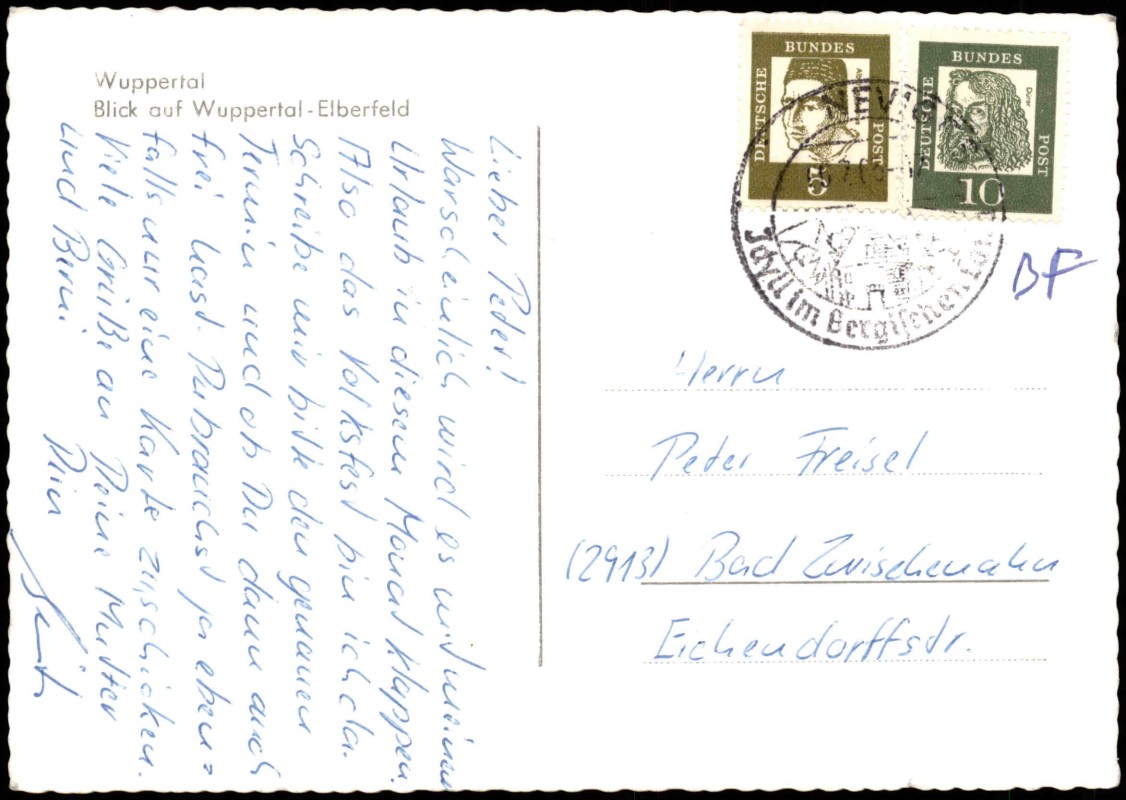 Wuppertal
Blick auf Wuppertal-Elberfeld
Lieber Peter!
Warscheinlich wird es mit meinem
Urlaub in diesem Monat klappen.
Also das Volksfest bin ich da.
Schreibe mir bitte den genauen
Termin und ob Du dann auch
frei hast. Du brauchst ja eben=
falls nur eine Karte zuschicken.
Viele Grüße an Deine Mutter
und Benni
Dein
DEUTSCHE BUNDES POST
5
DEUTSCHE BUNDES POST
Dürer
10
Idyll im Bergischen
BF
Herrn
Peter Freisel
(2913) Bad Zwischenahn
Eichendorffstr.